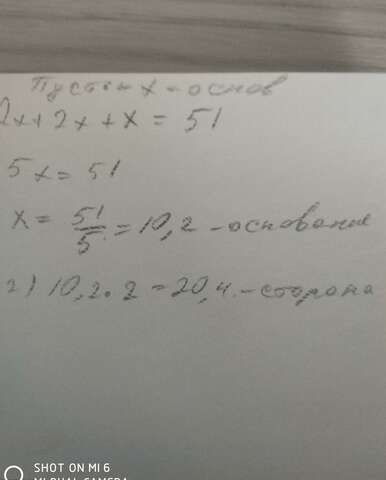 Пусть x - основ
2x+2x+x = 51
5x = 51
x = 51/5 = 10,2 - основание
2) 10,2 · 2 = 20,4 - сторона
SHOT ON MI 6
MI DUAL CAMERA